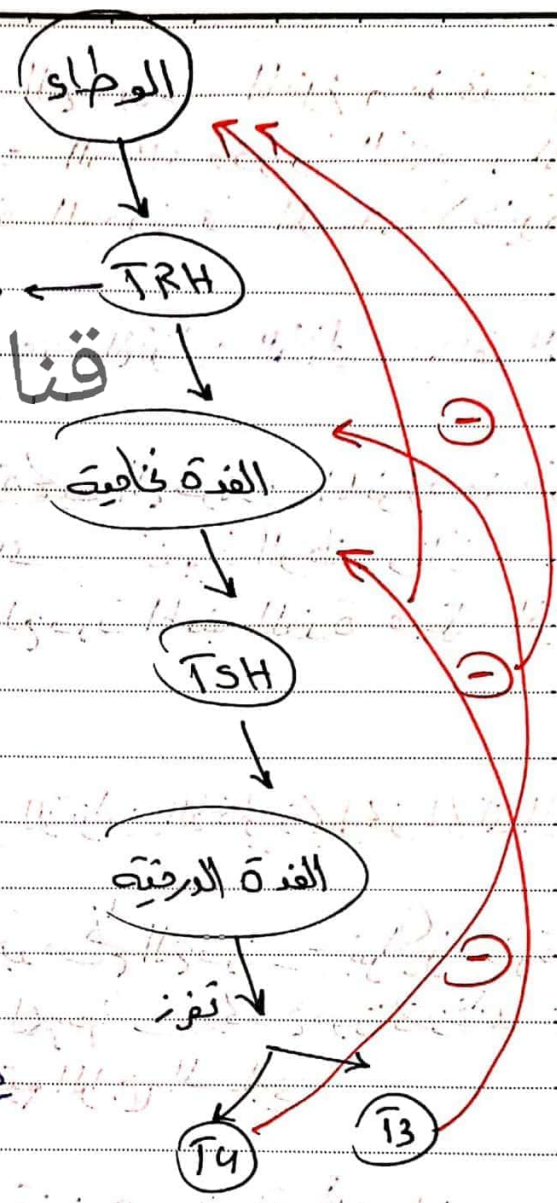 الوطاء
TRH
قنا
الغدة نخامية
-
TSH
-
الغدة الدرقية
-
تفرز
T3
T4